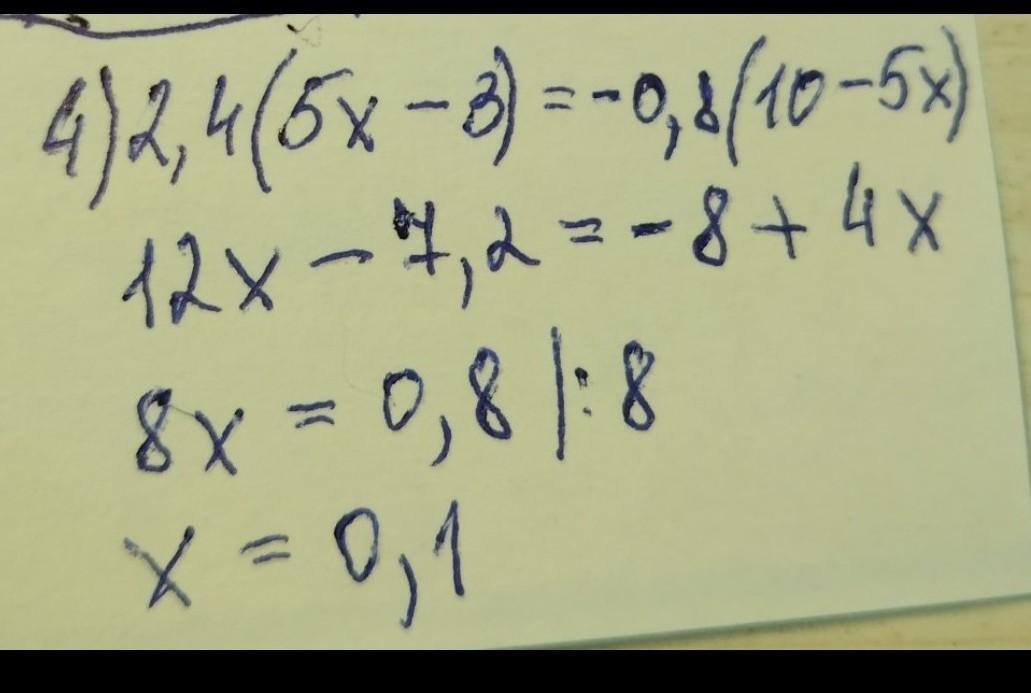 4) 2,4(5x - 3) = -0,8(10 - 5x)
12x - 7,2 = -8 + 4x
8x = 0,8 |:8
x = 0,1